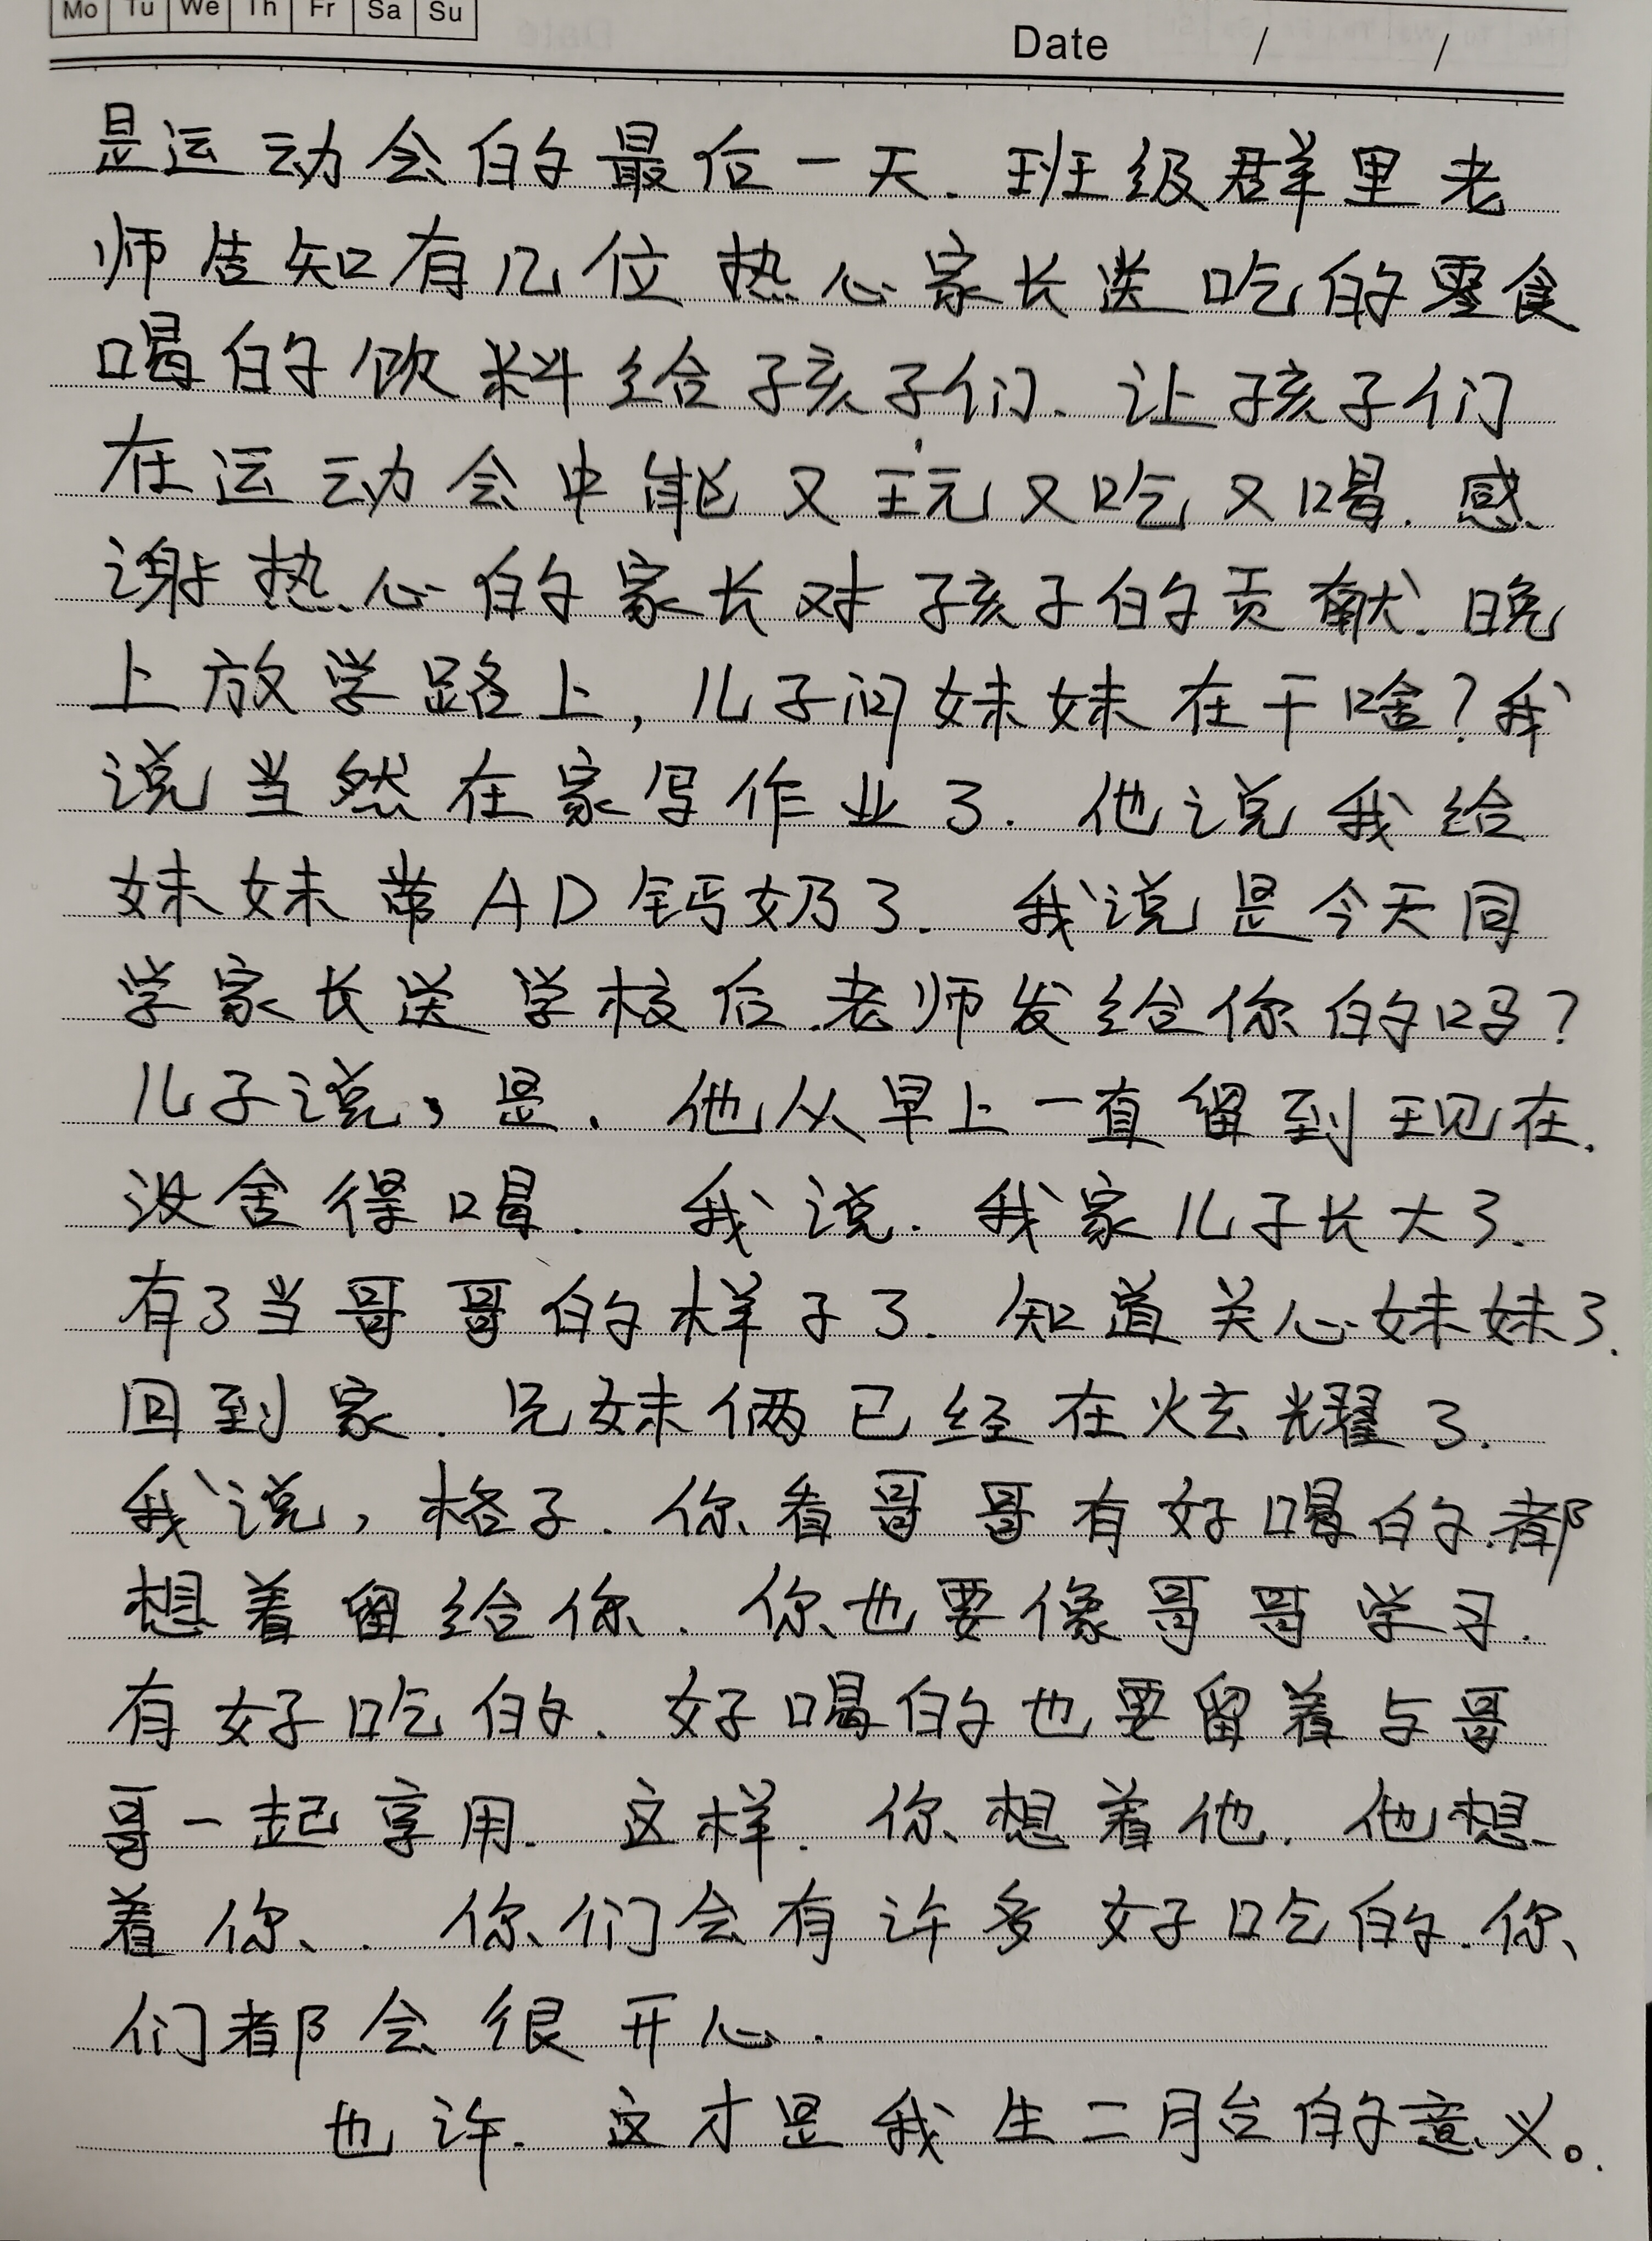 Mo Tu We Th Fr Sa Su
Date / /
是运动会的最后一天.班级群里老
师告知有几位热心家长送吃的零食
喝的饮料给孩子们、让孩子们
在运动会中能又玩又吃又喝.感
谢热心的家长对孩子的贡献.晚
上放学路上,儿子问妹妹在干啥?我
说当然在家写作业了.他说我给
妹妹带AD钙奶了.我说是今天同
学家长送学校后.老师发给你的吗?
儿子说,是.他从早上一直留到现在.
没舍得喝.我说.我家儿子长大了.
有了当哥哥的样子了.知道关心妹妹了.
回到家.兄妹俩已经在炫耀了.
我说,格子.你看哥哥有好喝的.都
想着留给你.你也要像哥哥学习.
有好吃的.好喝的也要留着与哥
哥一起享用.这样.你想着他.他想
着你.你们会有许多好吃的.你
们都会很开心.
也许.这才是我生二胎的意义。